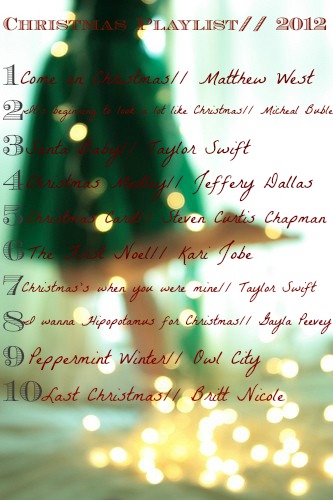 Christmas Playlist// 2012
1 Come on Christmas// Matthew West
2 It's beginning to look a lot like Christmas// Micheal Buble
3 Santa Baby// Taylor Swift
4 Christmas Medley// Jeffery Dallas
5 Christmas Carol// Steven Curtis Chapman
6 The First Noel// Kari Jobe
7 Christmas's when you were mine// Taylor Swift
8 I wanna Hipopotamus for Christmas// Gayla Peevey
9 Peppermint Winter// Owl City
10 Last Christmas// Britt Nicole